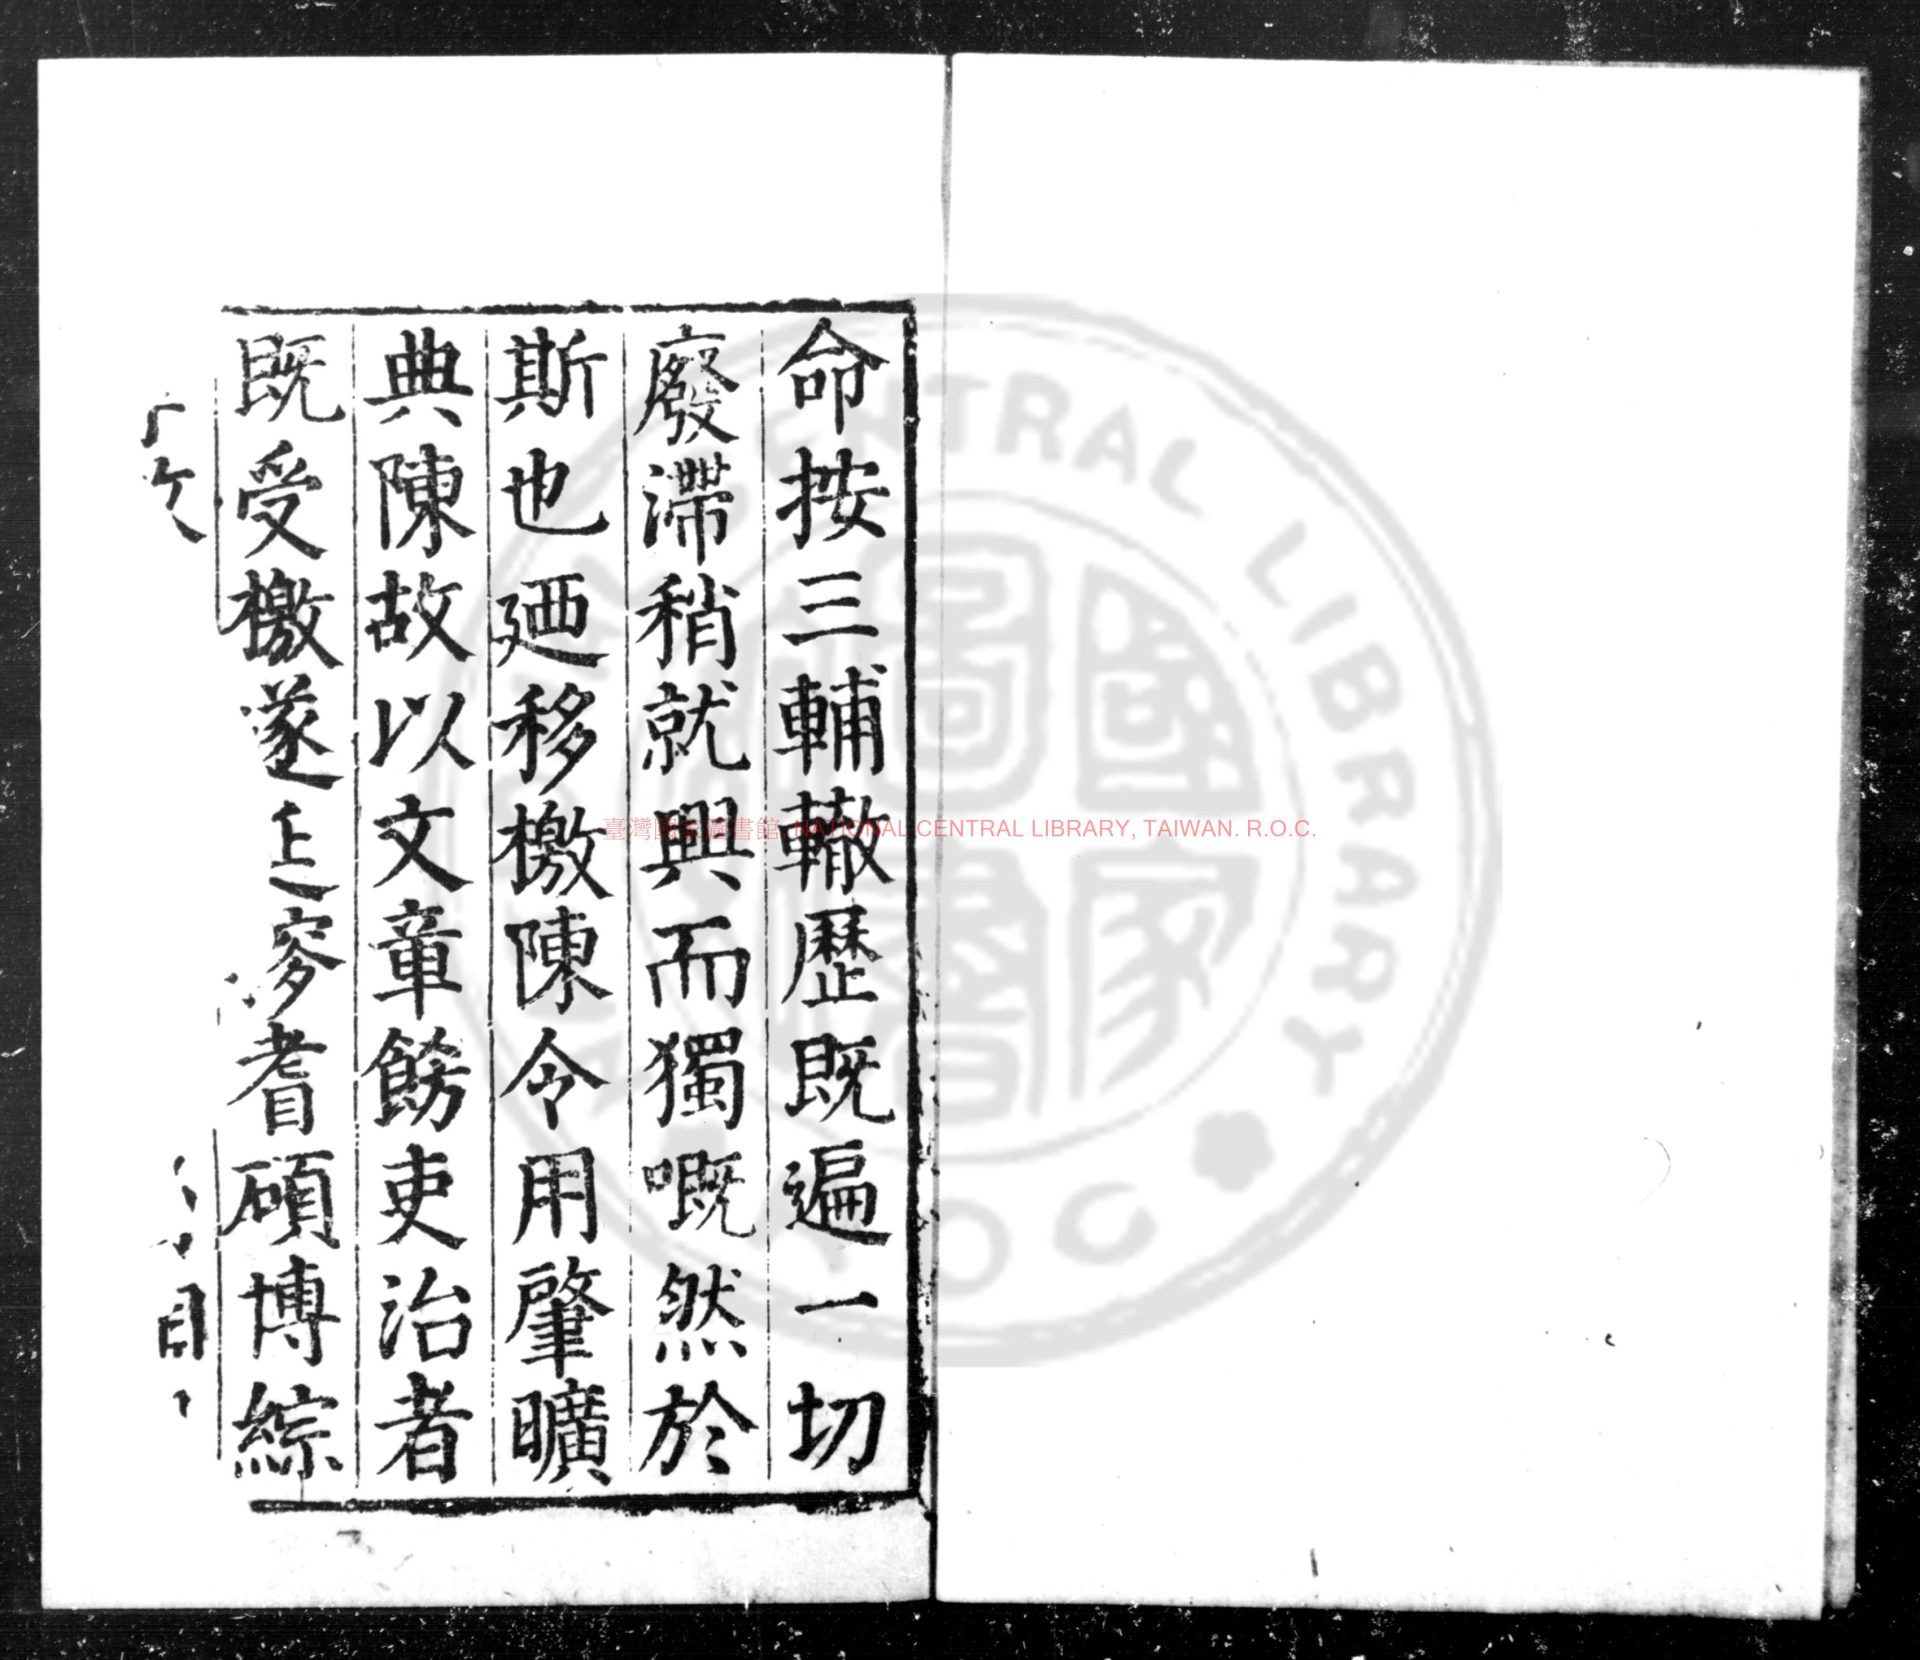 命按三輔轍歷既遍一切
廢滯稍就興而獨嘅然於
斯也廼移檄陳令用肇曠
典陳故以文章餝吏治者
既受檄遂上耆碩博綜
臺灣國家圖書館, NATIONAL CENTRAL LIBRARY, TAIWAN. R.O.C.
CENTRAL LIBRARY